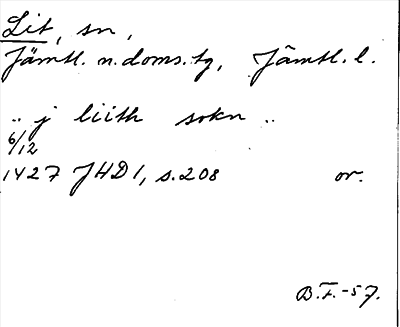 Lit, sn,
Jämtl. n. doms. tg, Jämtl. l.
.. j liith sokn ..
6/12
1427 JHD 1, s. 208 or.
B.F.-57.